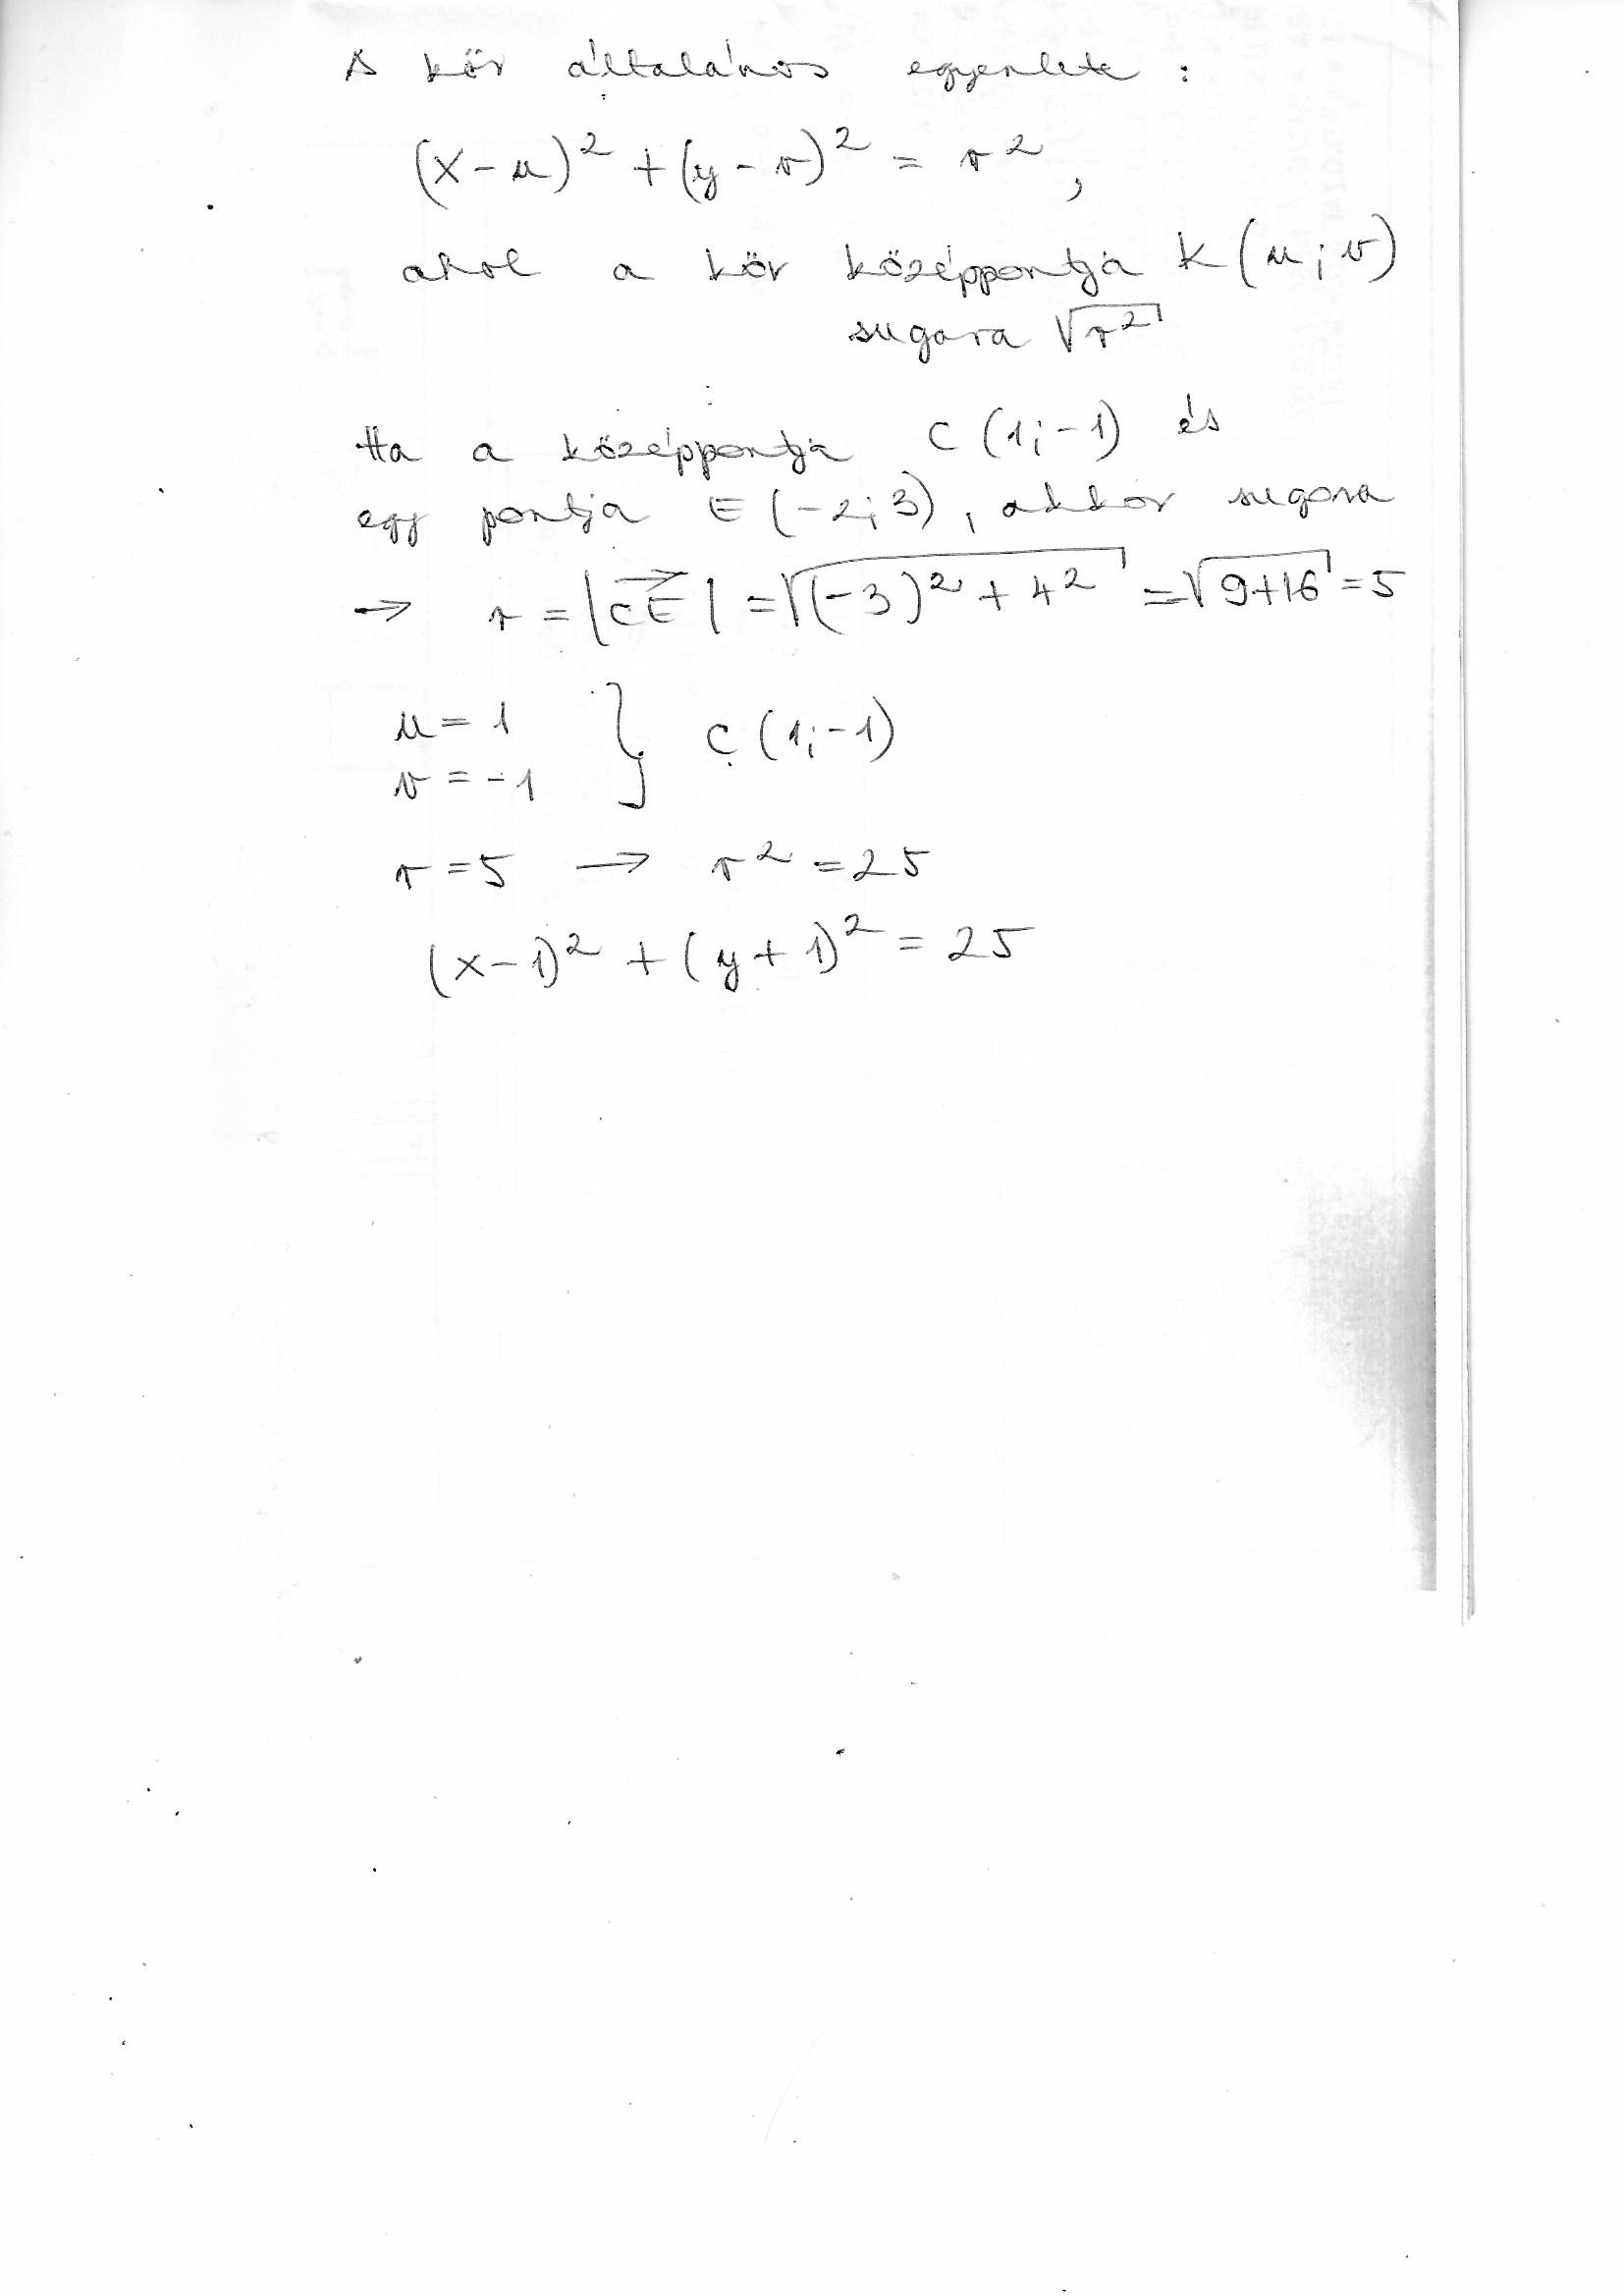 A kör általános egyenlete :
(x-u)² + (y-v)² = r² ,
ahol a kör középpontja K (u; v)
sugara √r²
Ha a középpontja C (1; -1) és
egy pontja E (-2; 3), akkor sugara
→ r = |CE→| = √((-3)² + 4²) = √(9+16) = 5
u = 1 } C (1; -1)
v = -1
r = 5 → r² = 25
(x-1)² + (y+1)² = 25